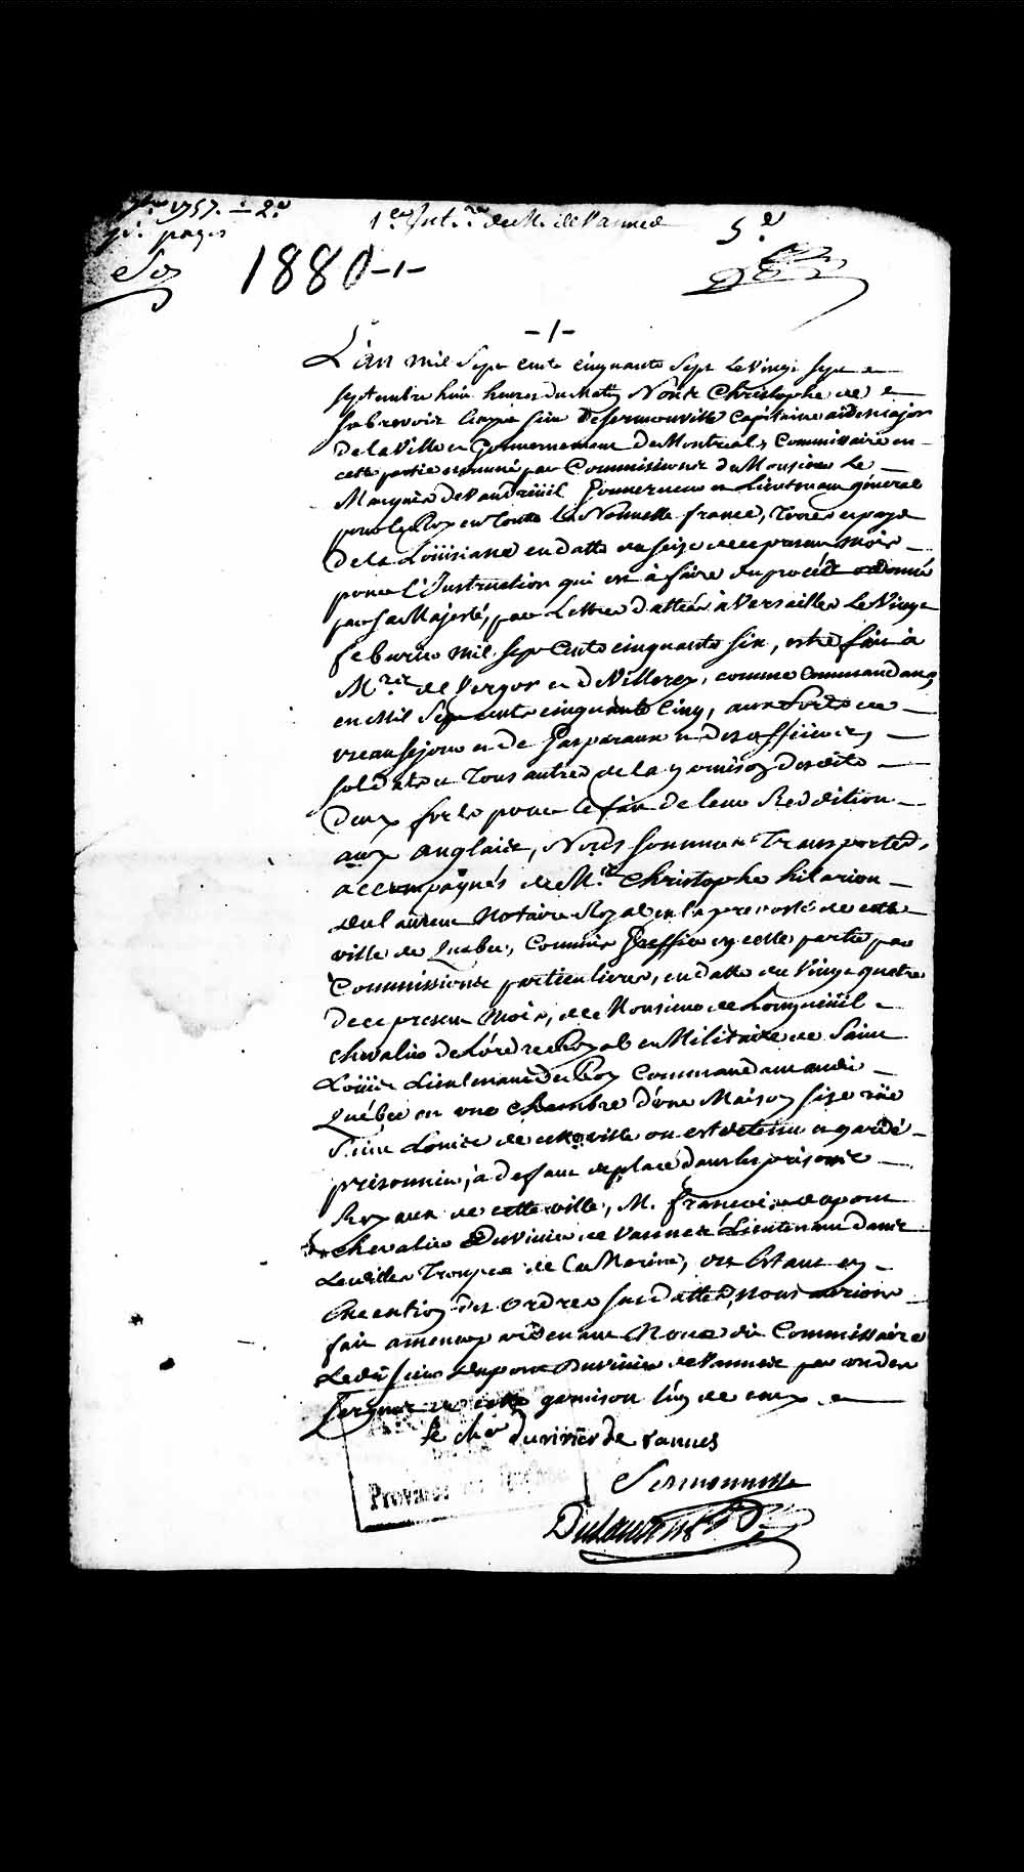 7bre 1757. — 2e
pages
1er Int.re de M. de Vannes
5e
1880-1-
-1-
L'an mil sept cents cinquante sept le vingt sept
septembre huit heures du matin Nous Christophe de
Sabrevoir Ecuyer sieur Desermonville Capitaine aidemajor
de la Ville et Gouvernement de Montreal, Commissaire en
cette partie nommé par Commission de Monsieur Le
Marquis de Vaudreüil Gouverneur et Lieutenant général
pour le Roy en toute la Nouvelle france, Terres et pays
de la Loüisiane en datte du seize de ce present mois
pour l'Instruction qui est à faire du procès ordonné
par sa Majesté, par Lettre dattée à Versailles le Vingt
febvrier mil sept Cents cinquante six, estre fait à
Mrs de Vergor et de Villeray, comme Commandans
en Mil Sept cents cinquante Cinq, aux forts de
Beausejour et de Gasparaux et des officiers,
soldats et Tous autres de la garnison desdits
deux forts pour le fait de leur Reddition
aux anglais, Nous sommes Transportés,
accompagnés de M.e Christophe hilarion
dulaurent Notaire Royal en la prevosté de cette
ville de Quebec, Commis Greffier en cette partie par
Commission particuliere, en datte du Vingt quatre
de ce present Mois, de Monsieur de Longüeüil
chevalier de L'ordre Royal et Militaire de Saint
Loüis Lieutenant du Roy Commandant audit
Québec en une chambre d'une Maison size rüe
S.t Loüis de cette ville ou est detenu et gardé
prisonnier, à deffaut de place dans les prisons
Royaux de cette ville, M. François dupont
chevalier Duvivier de Vannes Lieutenant dans
lesdittes Troupes de la Marine, et Estant en
Execution des Ordres susdattés, nous aurions
fait amener pardevant Nous dit Commissaire
Ledit sieur dupont Duvivier de Vannes par un des
Sergens de cette garnison l'un de ceux
le cher duvivier de vannes
Sermonville
Dulaurent
Province de Québec